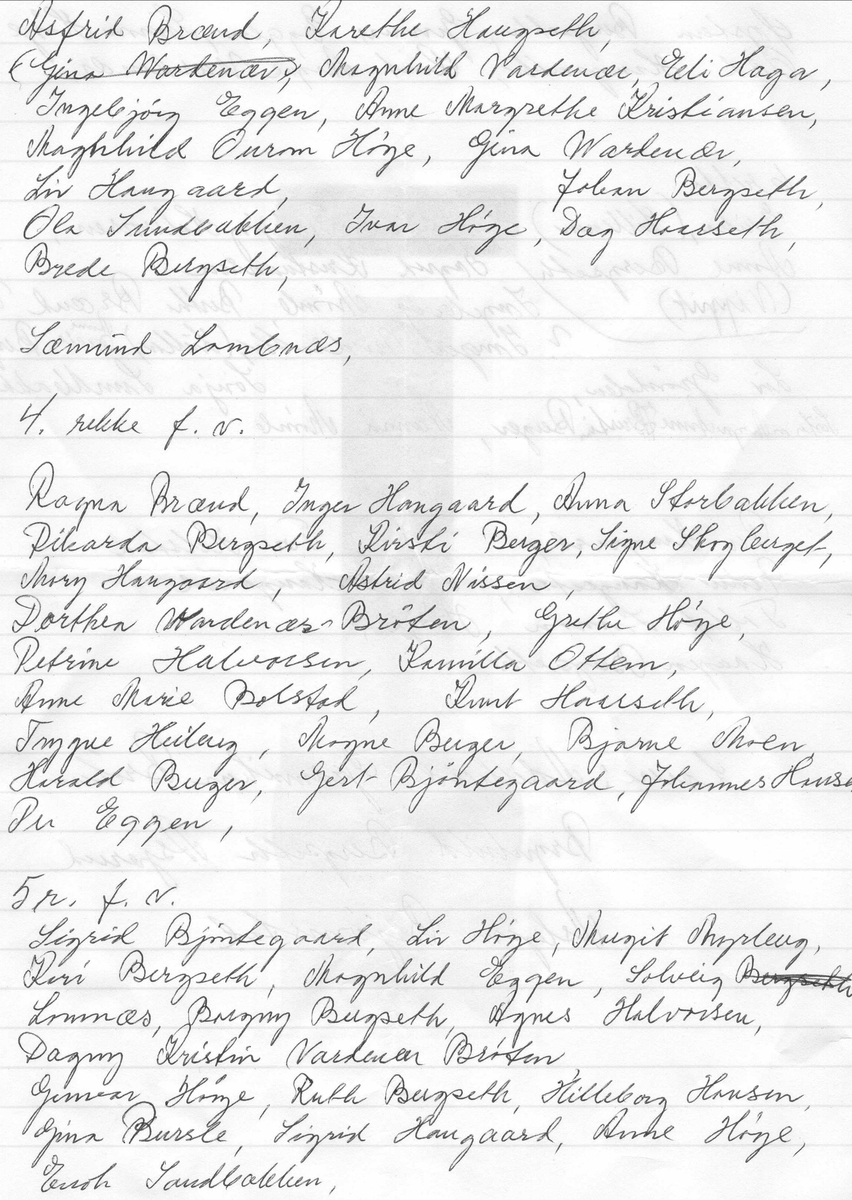 Astrid Brænd, Karethe Haugseth,
(Gina Wardenær), Magnhild Vardenær, Eli Haga,
Ingebjørg Eggen, Anne Margrethe Kristiansen,
Magnhild Ourom Høge, Gina Wardenær,
Liv Haugaard, Johan Bergseth,
Ola Sundbakken, Ivar Høge, Dag Haarseth,
Brede Bergseth,
Sæmund Lombnæs,
4. rekke f. v.
Ragna Brænd, Inger Haugaard, Anna Storbakken,
Rikarda Bergseth, Kirsti Berger, Signe Skogberget,
Mary Haugaard, Astrid Nissen,
Dorthea Wardenær-Bröten, Grethe Høge,
Petrine Halvorsen, Kamilla Ottem,
Anne Marie Bolstad, Knut Haarseth,
Trygve Heiberg, Mogne Berger, Bjarne Moen,
Harald Berger, Gert Bjöntegaard, Johannes Hanse
Per Eggen,
5 r. f. v.
Sigrid Bjöntegaard, Liv Høge, Margit Myrleng,
Kari Bergseth, Magnhild Eggen, Solveig Bergseth
Lomnæs, Borgny Bergseth, Agnes Halvorsen,
Dagny Kristin Vardenær Bröten
Gunvor Høge, Ruth Bergseth, Hilleborg Hansen,
Gina Bursle, Sigrid Haugaard, Anne Høge,
Enok Sandbakken,